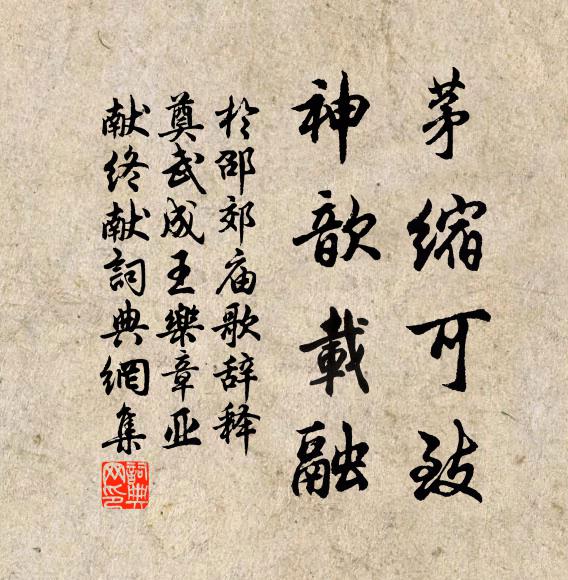 茅缩可致
神歆載融
於邵郊庙歌辞释
奠武成王樂章亚
献终献詞典網集
詞典
网印